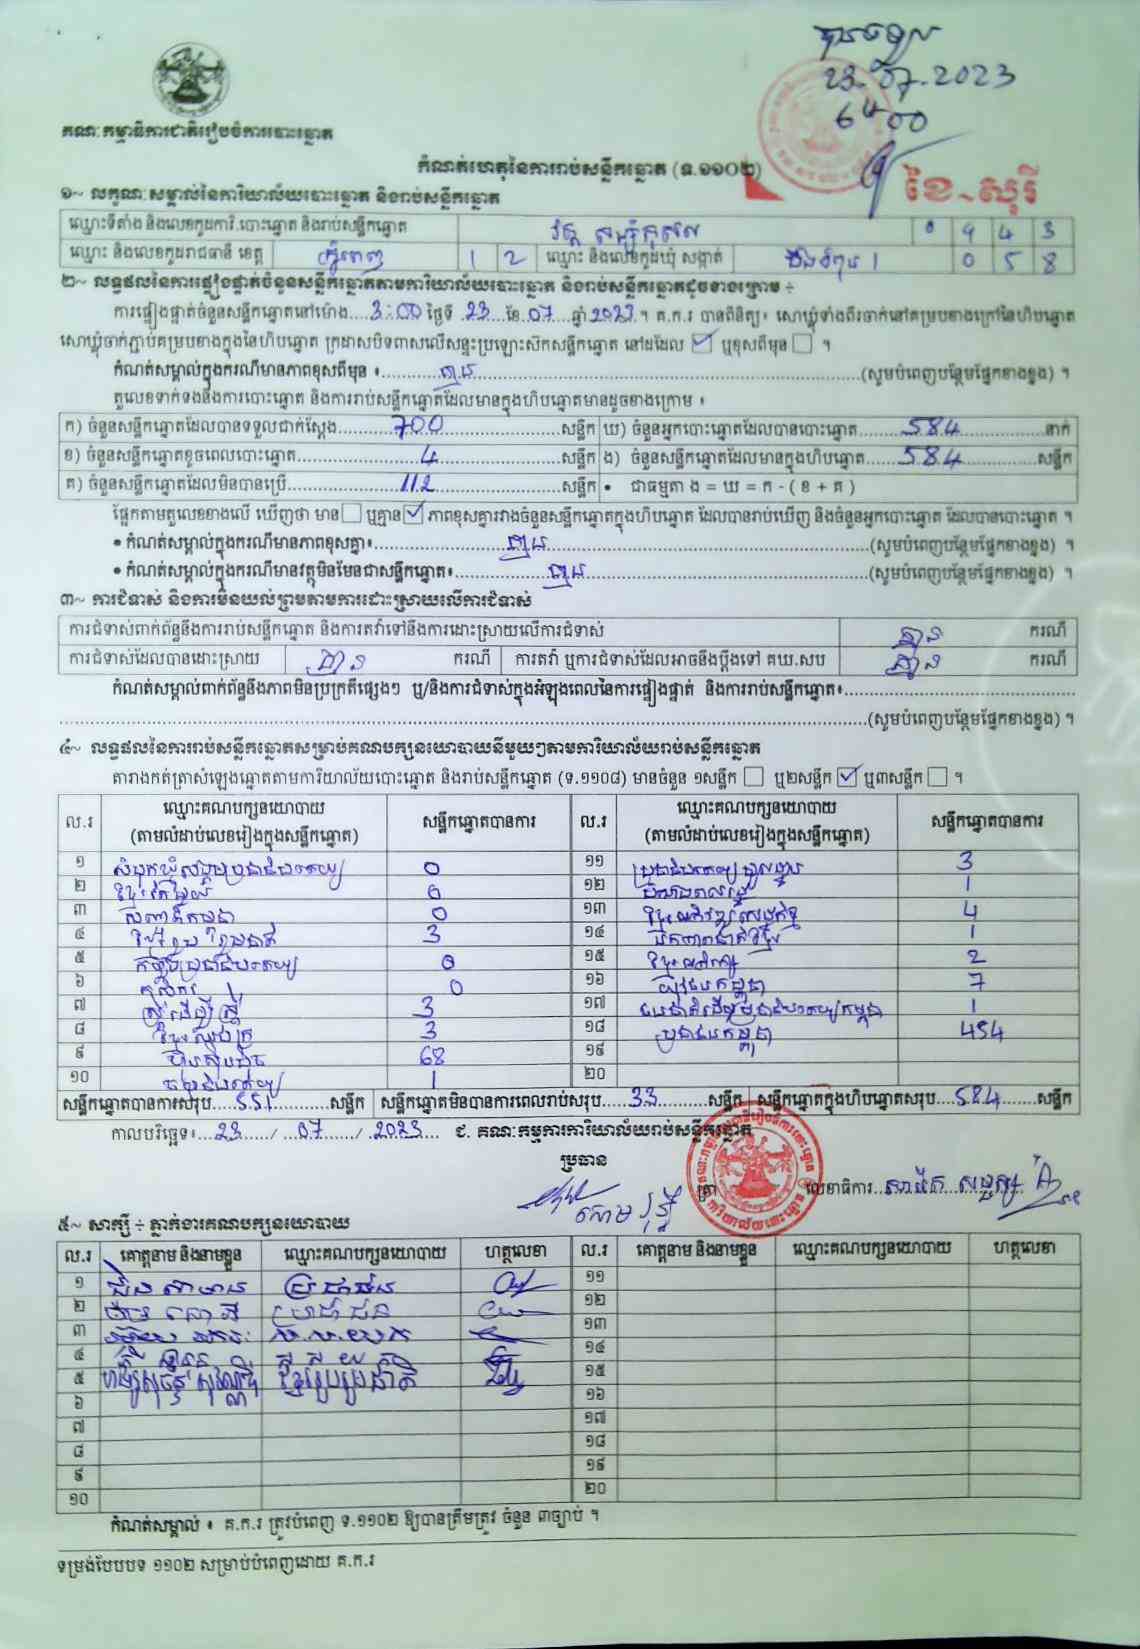 បានទទួល
23-07-2023
6h00
គណៈកម្មាធិការជាតិរៀបចំការបោះឆ្នោត
កំណត់ហេតុនៃការរាប់សន្លឹកឆ្នោត (ទ.១១០២)
ខៃ~សុរី
១~ លក្ខណៈសម្គាល់នៃការិយាល័យបោះឆ្នោត និងរាប់សន្លឹកឆ្នោត
ឈ្មោះទីតាំង និងលេខកូដការិ.បោះឆ្នោត និងរាប់សន្លឹកឆ្នោត វត្ត 0 9 4 3
ឈ្មោះ និងលេខកូដរាជធានី ខេត្ត ភ្នំពេញ 1 2 ឈ្មោះ និងលេខកូដឃុំ សង្កាត់ 0 5 8
២~ លទ្ធផលនៃការផ្ទៀងផ្ទាត់ចំនួនសន្លឹកឆ្នោតតាមការិយាល័យបោះឆ្នោត និងរាប់សន្លឹកឆ្នោតដូចខាងក្រោម ÷
ការផ្ទៀងផ្ទាត់ចំនួនសន្លឹកឆ្នោតនៅម៉ោង...3:00 ថ្ងៃទី 23 ខែ 07 ឆ្នាំ 2023 ។ គ.ក.រ បានពិនិត្យ៖ សោឃ្លុំទាំងពីរចាក់នៅគម្របខាងក្រៅនៃហិបឆ្នោត
សោឃ្លុំចាក់ភ្ជាប់គម្របខាងក្នុងនៃហិបឆ្នោត ក្រដាសបិទពាសលើសន្ទះប្រឡោះស៊កសន្លឹកឆ្នោត នៅដដែល ☑ ឬខុសពីមុន ☐ ។
កំណត់សម្គាល់ក្នុងករណីមានភាពខុសពីមុន ៖ គ្មាន (សូមបំពេញបន្ថែមផ្នែកខាងខ្នង) ។
តួលេខទាក់ទងនឹងការបោះឆ្នោត និងការរាប់សន្លឹកឆ្នោតដែលមានក្នុងហិបឆ្នោតមានដូចខាងក្រោម ៖
ក) ចំនួនសន្លឹកឆ្នោតដែលបានទទួលជាក់ស្តែង 700 សន្លឹក ឃ) ចំនួនអ្នកបោះឆ្នោតដែលបានបោះឆ្នោត 584 នាក់
ខ) ចំនួនសន្លឹកឆ្នោតខូចពេលបោះឆ្នោត 4 សន្លឹក ង) ចំនួនសន្លឹកឆ្នោតដែលមានក្នុងហិបឆ្នោត 584 សន្លឹក
គ) ចំនួនសន្លឹកឆ្នោតដែលមិនបានប្រើ 112 សន្លឹក • ជាធម្មតា ង = ឃ = ក - ( ខ + គ )
ផ្អែកតាមតួលេខខាងលើ ឃើញថា មាន ☐ ឬគ្មាន ☑ ភាពខុសគ្នារវាងចំនួនសន្លឹកឆ្នោតក្នុងហិបឆ្នោត ដែលបានរាប់ឃើញ និងចំនួនអ្នកបោះឆ្នោត ដែលបានបោះឆ្នោត ។
• កំណត់សម្គាល់ក្នុងករណីមានភាពខុសគ្នា៖ គ្មាន (សូមបំពេញបន្ថែមផ្នែកខាងខ្នង) ។
• កំណត់សម្គាល់ក្នុងករណីមានវត្ថុមិនមែនជាសន្លឹកឆ្នោត៖ គ្មាន (សូមបំពេញបន្ថែមផ្នែកខាងខ្នង) ។
៣~ ការជំទាស់ និងការមិនយល់ព្រមតាមការដោះស្រាយលើការជំទាស់
ការជំទាស់ពាក់ព័ន្ធនឹងការរាប់សន្លឹកឆ្នោត និងការតវ៉ាទៅនឹងការដោះស្រាយលើការជំទាស់ គ្មាន ករណី
ការជំទាស់ដែលបានដោះស្រាយ គ្មាន ករណី ការតវ៉ា ឬការជំទាស់ដែលអាចនឹងប្តឹងទៅ គឃ.សប គ្មាន ករណី
កំណត់សម្គាល់ពាក់ព័ន្ធនឹងភាពមិនប្រក្រតីផ្សេងៗ ឬ/និងការជំទាស់ក្នុងអំឡុងពេលនៃការផ្ទៀងផ្ទាត់ និងការរាប់សន្លឹកឆ្នោត៖
(សូមបំពេញបន្ថែមផ្នែកខាងខ្នង) ។
៤~ លទ្ធផលនៃការរាប់សន្លឹកឆ្នោតសម្រាប់គណបក្សនយោបាយនីមួយៗតាមការិយាល័យរាប់សន្លឹកឆ្នោត
តារាងកត់ត្រាសំឡេងឆ្នោតតាមការិយាល័យបោះឆ្នោត និងរាប់សន្លឹកឆ្នោត (ទ.១១០៨) មានចំនួន ១សន្លឹក ☐ ឬ២សន្លឹក ☑ ឬ៣សន្លឹក ☐ ។
ល.រ ឈ្មោះគណបក្សនយោបាយ (តាមលំដាប់លេខរៀងក្នុងសន្លឹកឆ្នោត) សន្លឹកឆ្នោតបានការ ល.រ ឈ្មោះគណបក្សនយោបាយ (តាមលំដាប់លេខរៀងក្នុងសន្លឹកឆ្នោត) សន្លឹកឆ្នោតបានការ
១ សំបុកឃ្មុំសង្គមប្រជាធិបតេយ្យ 0 ១១ ប្រជាធិបតេយ្យមូលដ្ឋាន 3
២ ខ្មែរតែមួយ 0 ១២ 1
៣ 0 ១៣ ខ្មែរអភិវឌ្ឍសេដ្ឋកិច្ច 4
៤ 3 ១៤ ឯកភាពជាតិខ្មែរ 1
៥ កម្លាំងប្រជាធិបតេយ្យ 0 ១៥ 2
៦ កសិករ 0 ១៦ យុវជនកម្ពុជា 7
៧ ស្ត្រីដើម្បីស្ត្រី 3 ១៧ 1
៨ 3 ១៨ ប្រជាជនកម្ពុជា 454
៩ ហ៊្វុនស៊ិនប៉ិច 68 ១៩
១០ 1 ២០
សន្លឹកឆ្នោតបានការសរុប 551 សន្លឹក សន្លឹកឆ្នោតមិនបានការពេលរាប់សរុប 33 សន្លឹក សន្លឹកឆ្នោតក្នុងហិបឆ្នោតសរុប 584 សន្លឹក
កាលបរិច្ឆេទ៖ 23 / 07 / 2023 ជ. គណៈកម្មការការិយាល័យរាប់សន្លឹកឆ្នោត
ប្រធាន
ត្រា លេខាធិការ
៥~ សាក្សី ÷ ភ្នាក់ងារគណបក្សនយោបាយ
ល.រ គោត្តនាម និងនាមខ្លួន ឈ្មោះគណបក្សនយោបាយ ហត្ថលេខា ល.រ គោត្តនាម និងនាមខ្លួន ឈ្មោះគណបក្សនយោបាយ ហត្ថលេខា
១ ប្រជាជន ១១
២ ប្រជាជន ១២
៣ ស.ស.យ.ក ១៣
៤ ១៤
៥ ១៥
៦ ១៦
៧ ១៧
៨ ១៨
៩ ១៩
១០ ២០
កំណត់សម្គាល់ ៖ គ.ក.រ ត្រូវបំពេញ ទ.១១០២ ឱ្យបានត្រឹមត្រូវ ចំនួន ៣ច្បាប់ ។
ទម្រង់បែបបទ ១១០២ សម្រាប់បំពេញដោយ គ.ក.រ